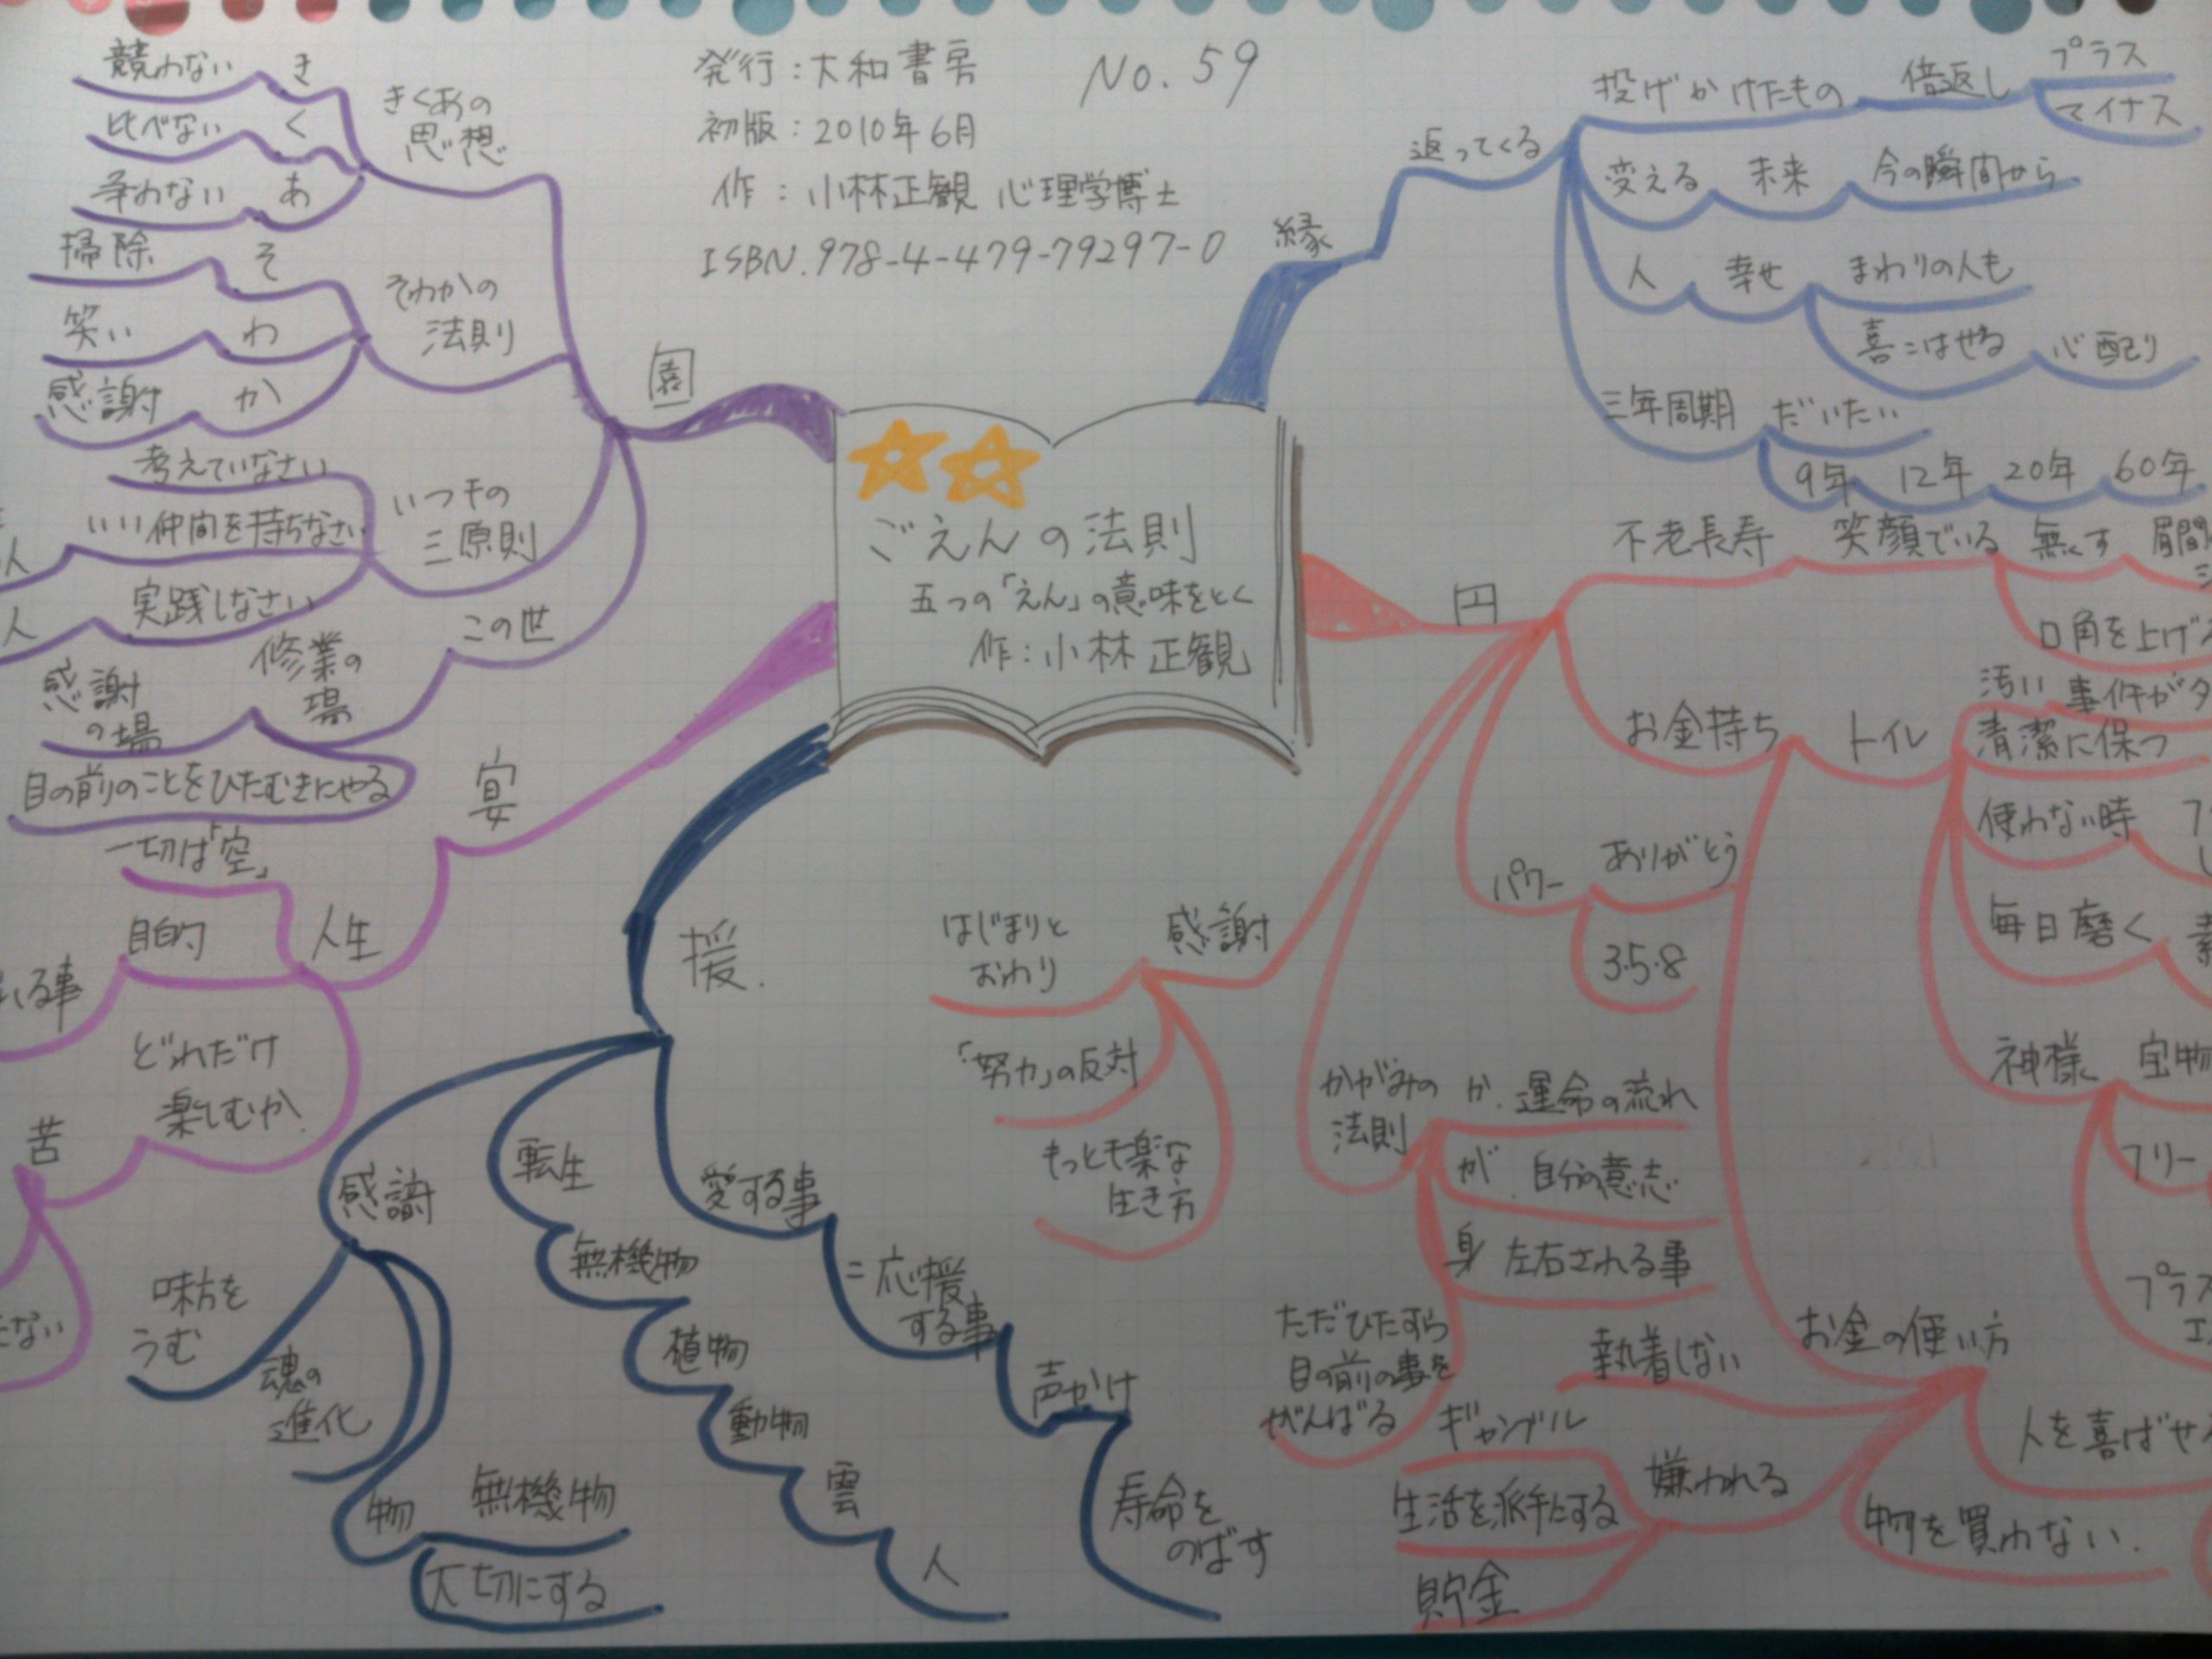 発行:大和書房
No.59
初版:2010年6月
作:小林正観 心理学博士
ISBN.978-4-479-79297-0
ごえんの法則
五つの「えん」の意味をとく
作:小林正観
縁
返ってくる
投げかけたもの
倍返し
プラス
マイナス
変える
未来
今の瞬間から
人
幸せ
まわりの人も
喜こばせる
心配り
三年周期
だいたい
9年
12年
20年
60年
円
不老長寿
笑顔でいる
無くす
口角を上げ
お金持ち
トイレ
汚い
事件が
清潔に保つ
使わない時
毎日磨く
神様
宝物
フリー
プラス
お金の使い方
執着しない
人を喜ばせ
物を買わない.
嫌われる
ギャンブル
生活を派手にする
貯金
パワー
ありがとう
3・5・8
かがみの
法則
か.運命の流れ
が.自分の意志
身 左右される事
ただひたすら
目の前の事を
がんばる
感謝
はじまりと
おわり
「努力」の反対
もっとも楽な
生き方
援.
愛する事
=応援
する事
声かけ
寿命を
のばす
転生
無機物
植物
動物
雲
人
感謝
味方を
うむ
魂の
進化
物
無機物
大切にする
宴
人生
一切は「空」
目的
いる事
どれだけ
楽しむか.
苦
ない
園
きくあの
思想
き
競わない
く
比べない
あ
争わない
そわかの
法則
そ
掃除
わ
笑い
か
感謝
いつもの
三原則
考えていなさい
いい仲間を持ちなさい
人
実践しなさい
人
この世
修業の
場
感謝
の場
目の前のことをひたむきにやる